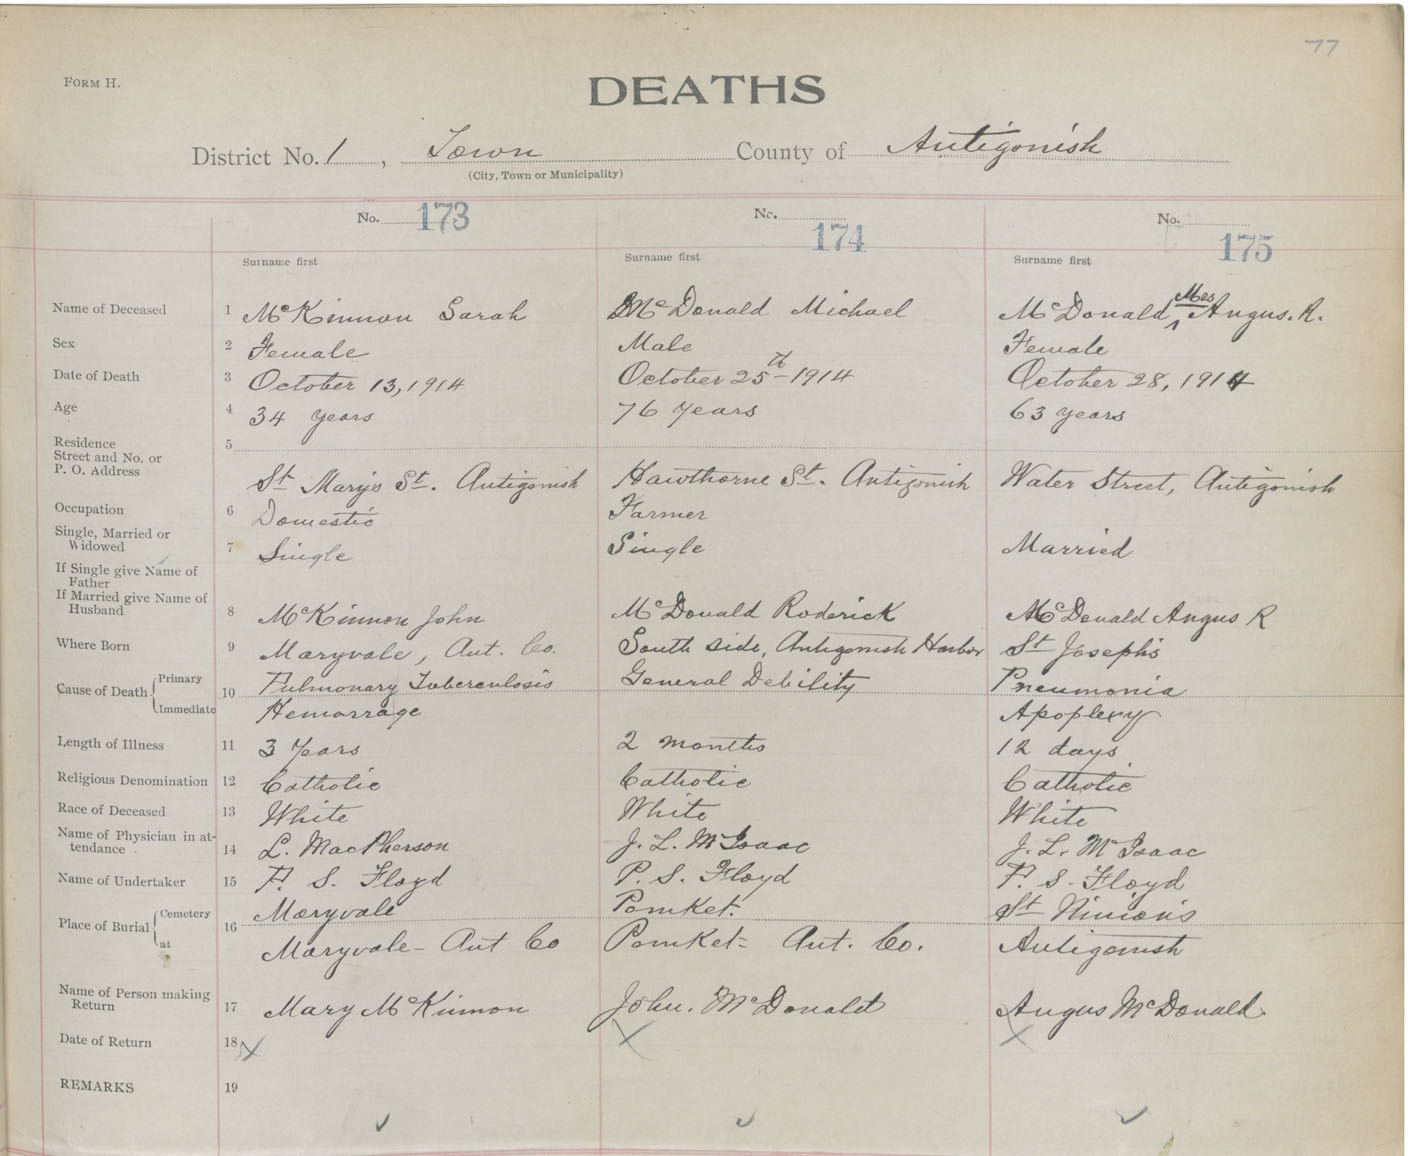 77
FORM H.
DEATHS
District No. 1, Town County of Antigonish
(City, Town or Municipality)
No. 173 No. 174 No. 175
Surname first Surname first Surname first
Name of Deceased 1 McKinnon Sarah McDonald Michael McDonald, Mrs Angus. R.
Sex 2 Female Male Female
Date of Death 3 October 13, 1914 October 25th 1914 October 28, 1914
Age 4 34 years 76 years 63 years
Residence 5
Street and No. or
P. O. Address St Mary's St. Antigonish Hawthorne St. Antigonish Water Street, Antigonish
Occupation 6 Domestic Farmer
Single, Married or
Widowed 7 Single Single Married
If Single give Name of
Father
If Married give Name of
Husband 8 McKinnon John McDonald Roderick McDonald Angus R
Where Born 9 Maryvale, Ant. Co. South side, Antigonish Harbor St Joseph's
Cause of Death Primary 10 Pulmonary Tuberculosis General Debility Pneumonia
Immediate Hemorrage Apoplexy
Length of Illness 11 3 Years 2 months 12 days
Religious Denomination 12 Catholic Catholic Catholic
Race of Deceased 13 White White White
Name of Physician in at-
tendance 14 L. MacPherson J. L. McIsaac J. L. McIsaac
Name of Undertaker 15 P. S. Floyd P. S. Floyd P. S. Floyd
Place of Burial Cemetery 16 Maryvale Pomket. St Ninian's
at Maryvale - Ant Co Pomket= Ant. Co. Antigonish
Name of Person making
Return 17 Mary McKinnon John. McDonald Angus McDonald.
Date of Return 18
REMARKS 19